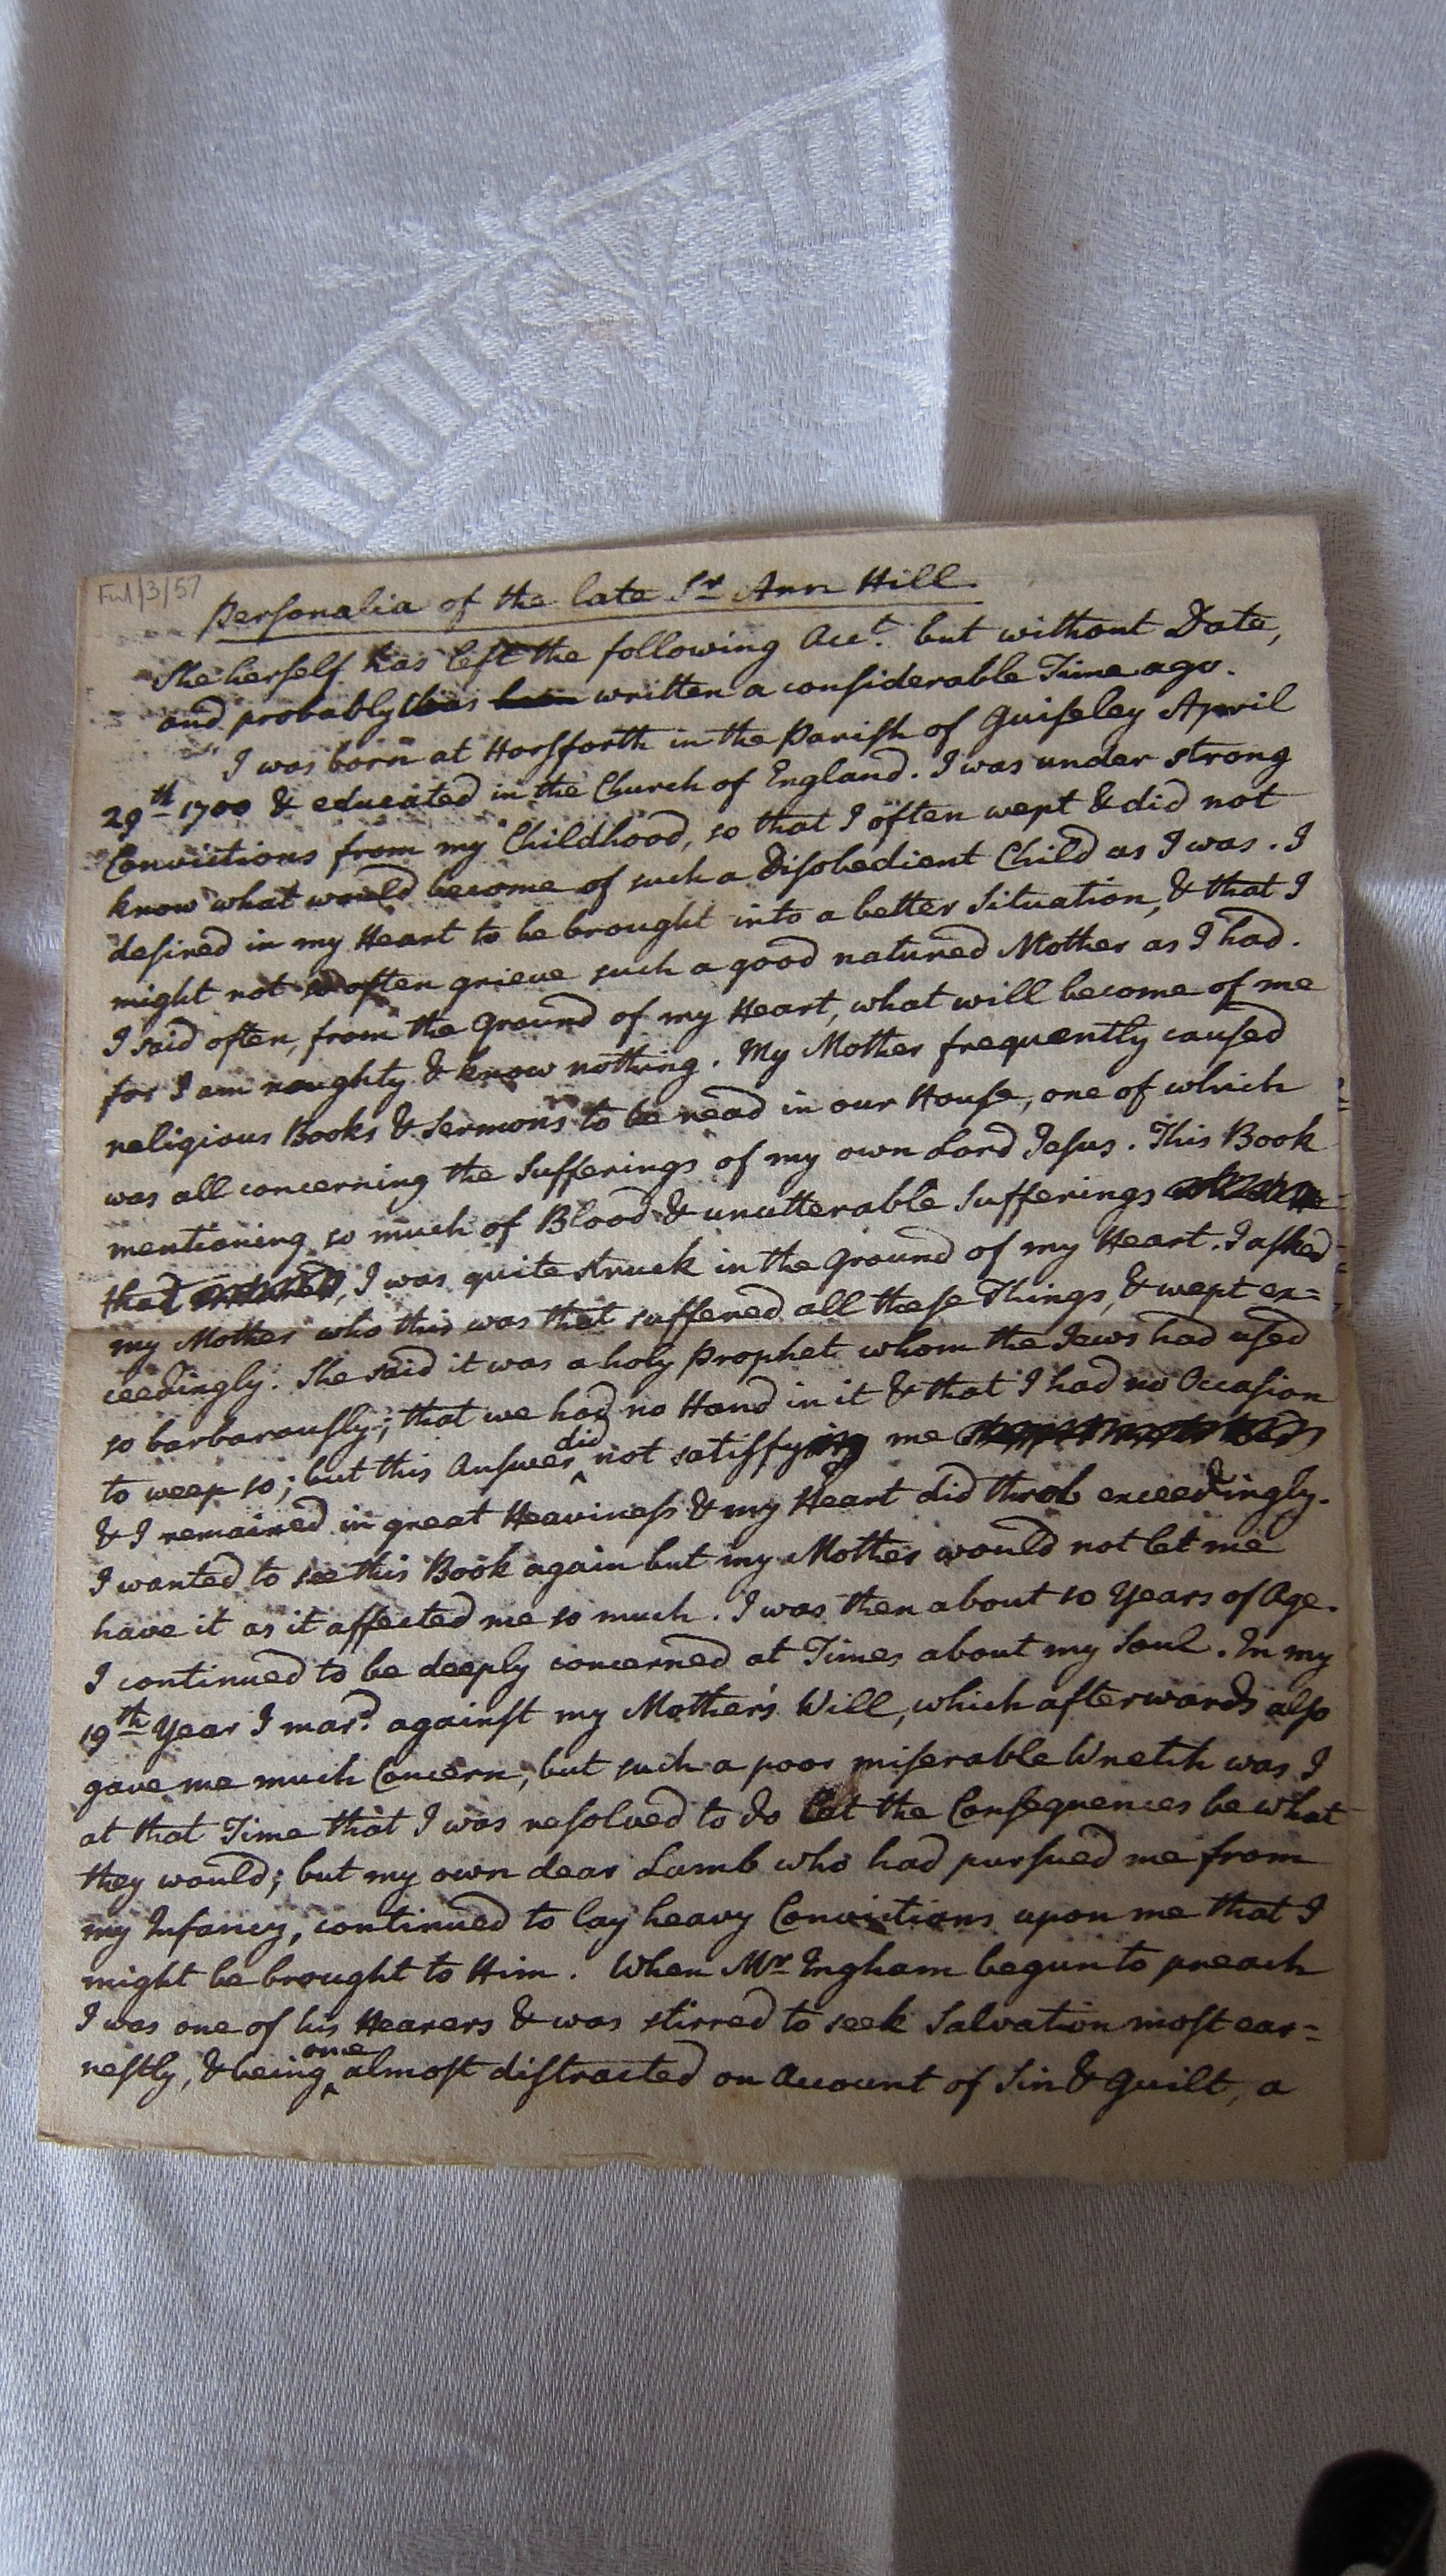 Ful/3/57
Personalia of the late Sr Ann Hill.
She herself has left the following Acct. but without Date,
and probably was written a considerable Time ago.
I was born at Horsforth in the Parish of Guiseley April
29th 1700 & educated in the Church of England. I was under strong
Convictions from my Childhood, so that I often wept & did not
know what would become of such a Disobedient Child as I was. I
desired in my Heart to be brought into a better Situation, & that I
might not so often grieve such a good natured Mother as I had.
I said often, from the Ground of my Heart, what will become of me
for I am naughty & know nothing. My Mother frequently caused
religious Books & Sermons to be read in our House, one of which
was all concerning the Sufferings of my own Lord Jesus. This Book
mentioning so much of Blood & unutterable Sufferings
that, I was quite struck in the Ground of my Heart. I asked
my Mother who this was that suffered all these Things, & wept ex=
ceedingly. She said it was a holy Prophet whom the Jews had used
so barbarously; that we had no Hand in it & that I had no Occasion
to weep so; but this Answer did not satisfy me
& I remained in great Heaviness & my Heart did throb exceedingly.
I wanted to see this Book again but my Mother would not let me
have it as it affected me so much. I was then about 10 Years of Age.
I continued to be deeply concerned at Times about my Soul. In my
19th Year I mard. against my Mother's Will, which afterwards also
gave me much Concern, but such a poor miserable Wretch was I
at that Time that I was resolved to do let the Consequences be what
they would; but my own dear Lamb who had pursued me from
my Infancy, continued to lay heavy Convictions upon me that I
might be brought to Him. When Mr Ingham begun to preach
I was one of his Hearers & was stirred to seek Salvation most ear=
nestly, & being one almost distracted on Account of Sin & Guilt, a